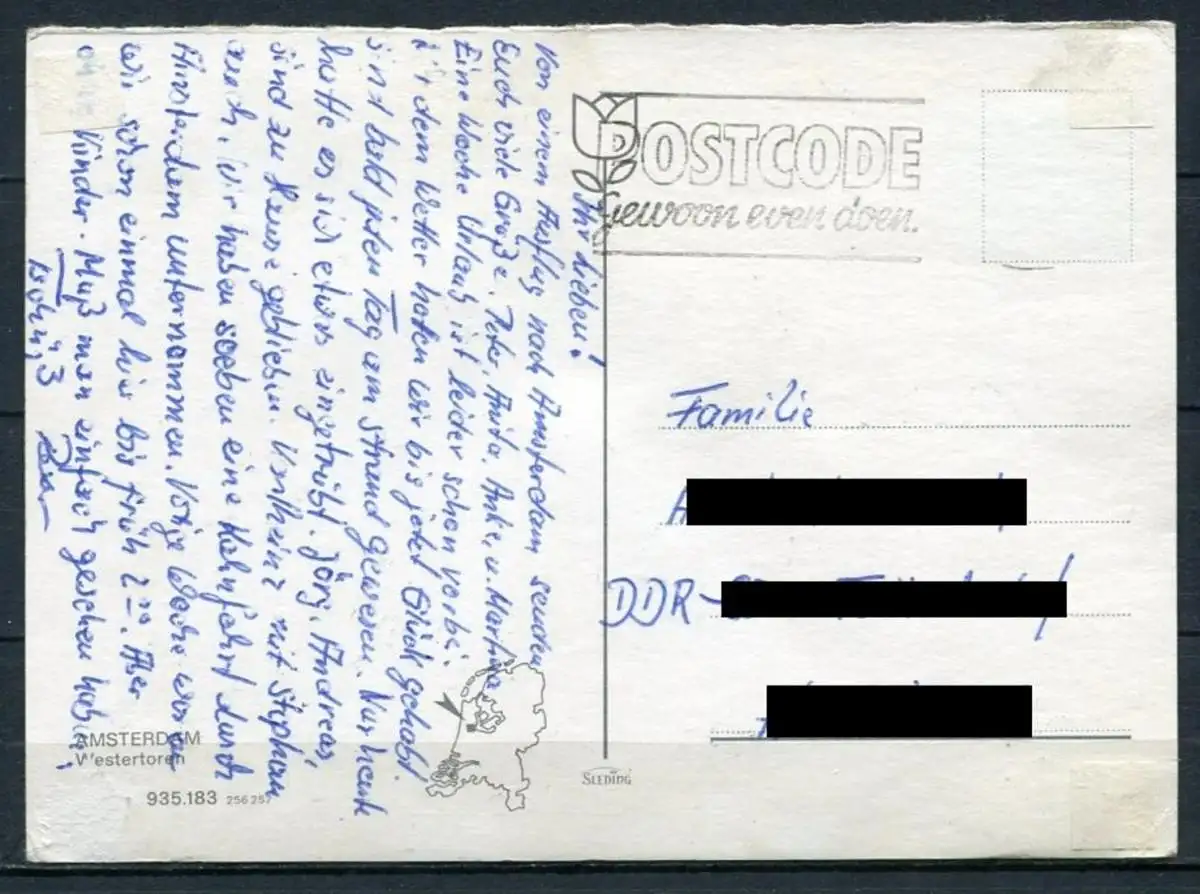 Ihr Lieben!
Von einem Ausflug nach Amsterdam senden
Euch viele Grüße. Peter, Anita, Anke, u. Martina
Eine Woche Urlaub ist leider schon vorbei.
Mit dem Wetter haben wir bis jetzt Glück gehabt.
sind fast jeden Tag am Strand gewesen. Nur heute
hatte es sich etwas eingetrübt. Jörg, Andreas,
sind zu Hause geblieben. Karlheinz mit Stephan
auch, Wir haben soeben eine Kahnfahrt durch
Amsterdam unternommen. Vorige Woche waren
wir schon einmal hier bis früh 2⁰⁰. Aber
ohne Kinder. Muß man einfach gesehen haben!
POSTCODE
gewoon even doen.
Familie
DDR-
AMSTERDAM
Westertoren
935.183 256257
SLEDING